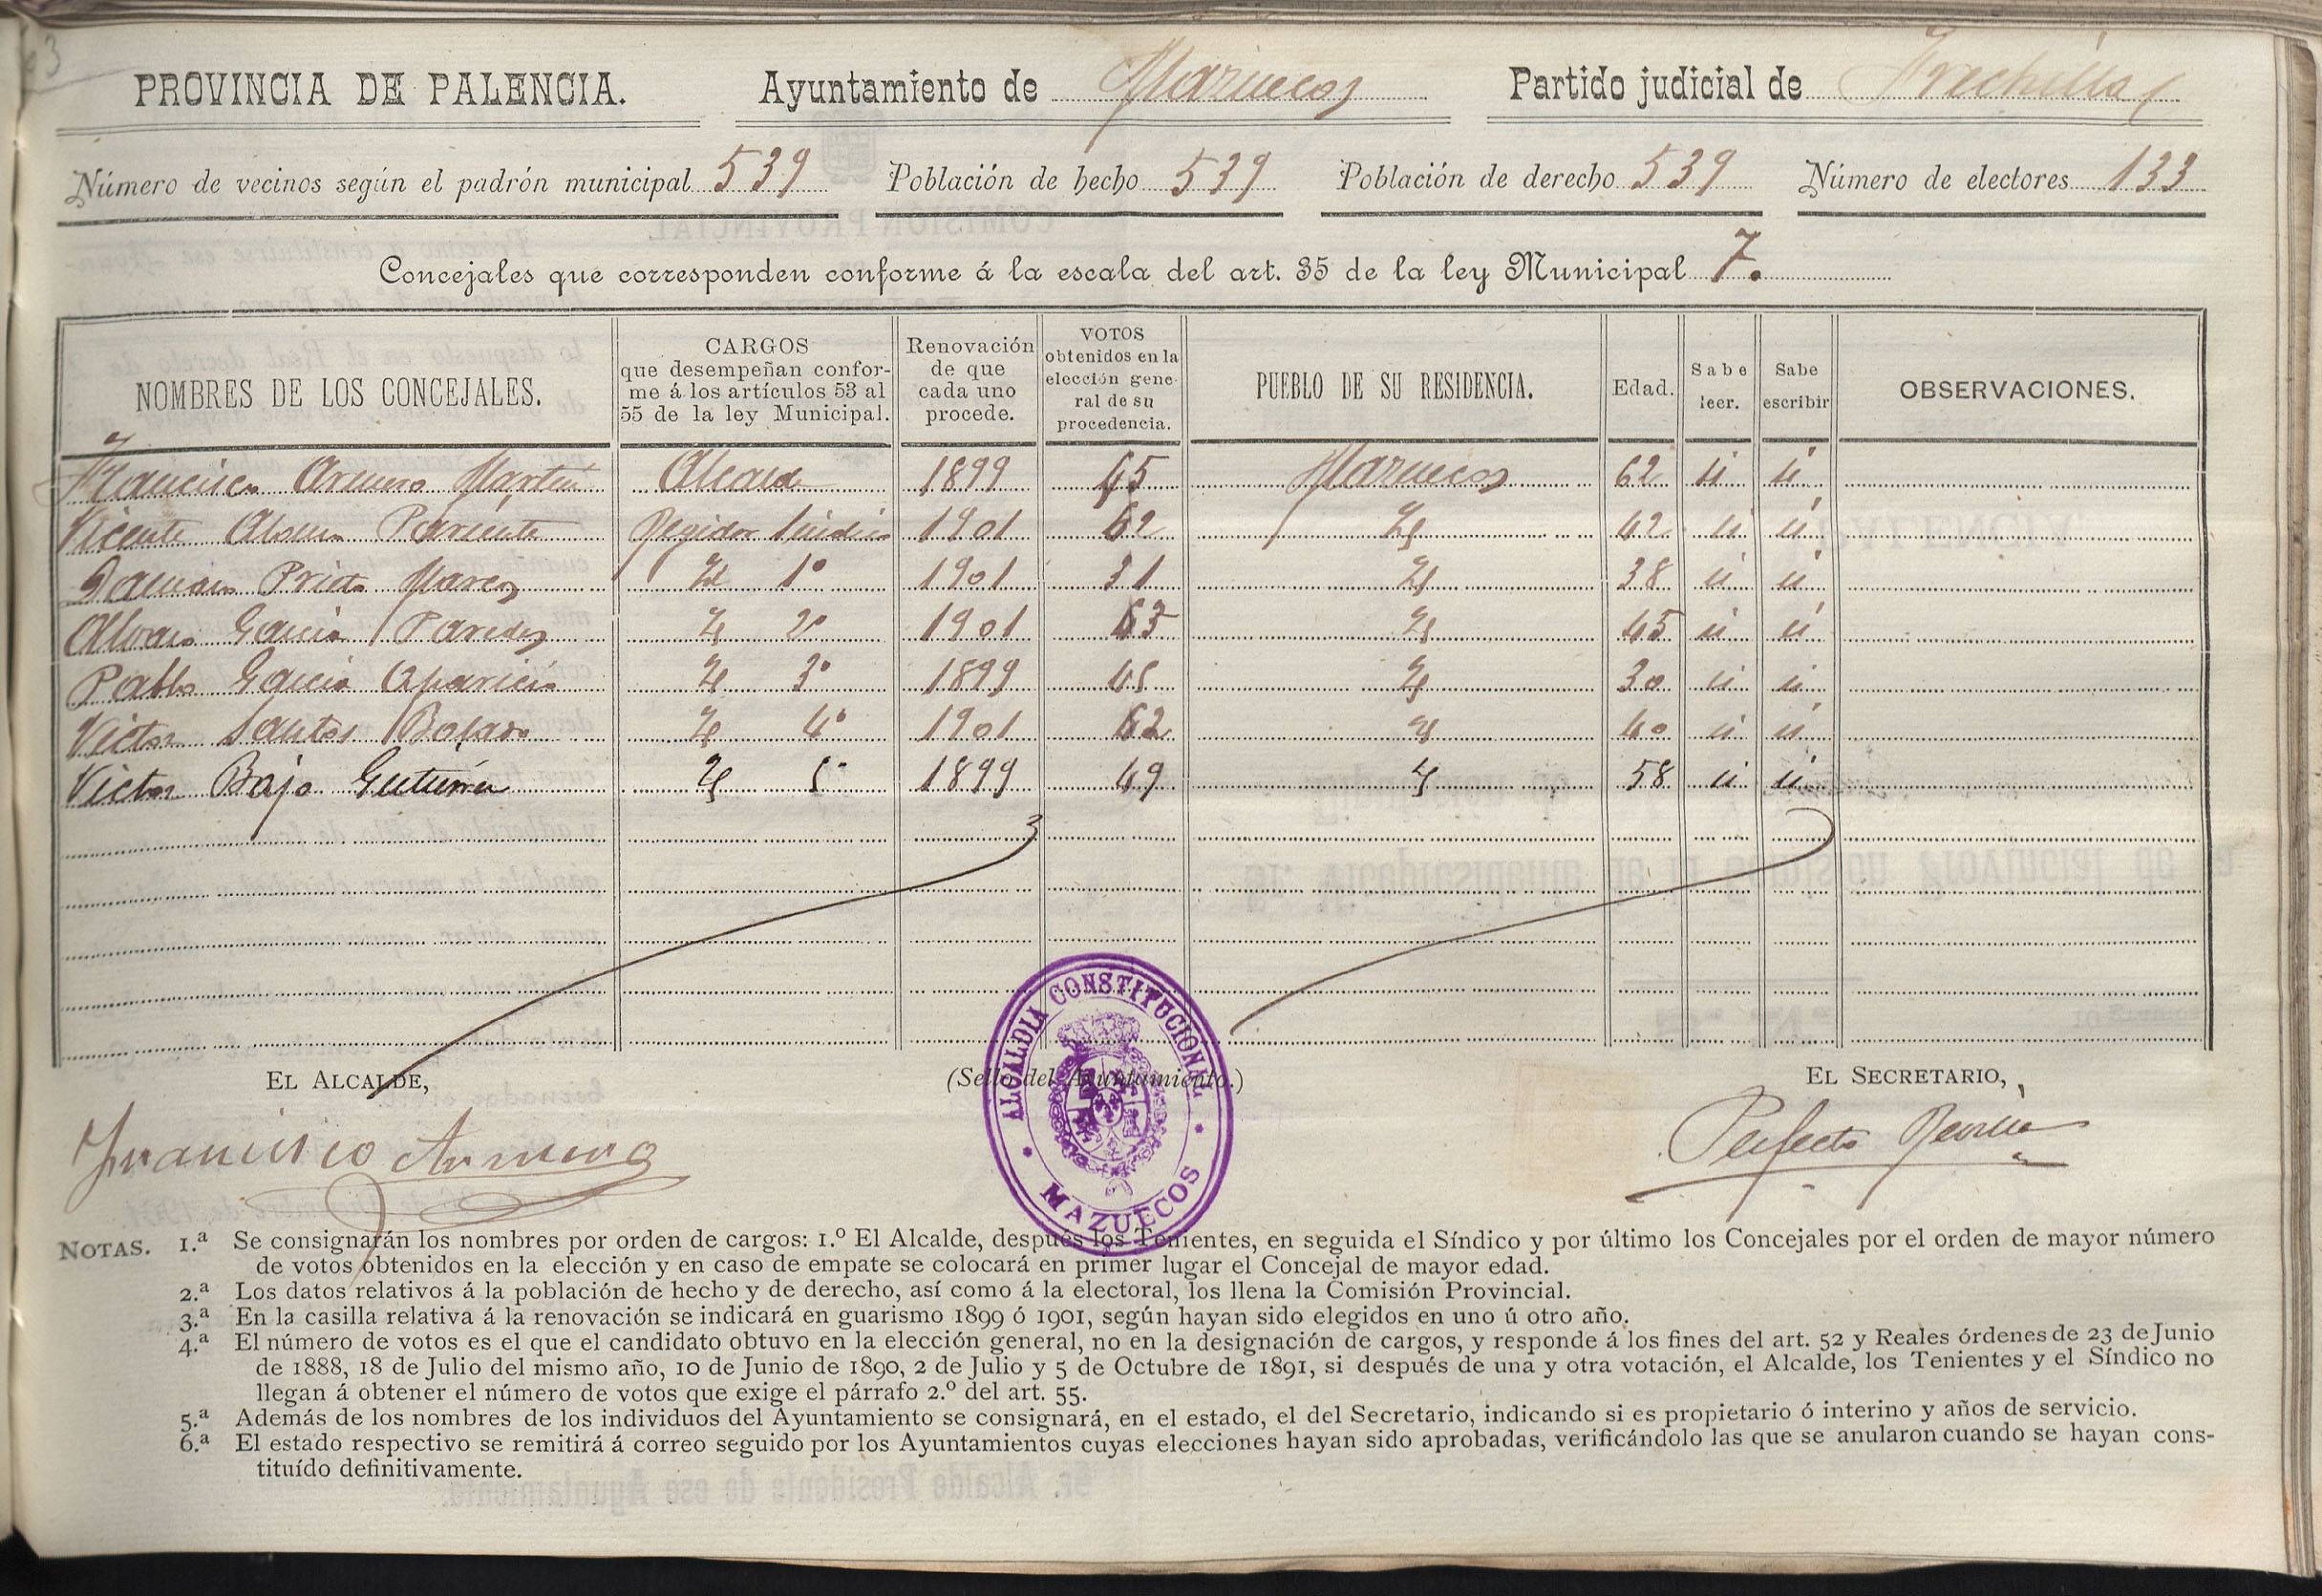 PROVINCIA DE PALENCIA. Ayuntamiento de Mazuecos Partido judicial de Frechilla
Número de vecinos según el padrón municipal 539 Población de hecho 539 Población de derecho 539 Número de electores 133
Concejales que corresponden conforme á la escala del art. 35 de la ley Municipal 7.
NOMBRES DE LOS CONCEJALES. CARGOS que desempeñan conforme á los artículos 53 al 55 de la ley Municipal. Renovación de que cada uno procede. VOTOS obtenidos en la elección general de su procedencia. PUEBLO DE SU RESIDENCIA. Edad. Sabe leer. Sabe escribir OBSERVACIONES.
Francisco Armero Martín Alcalde 1899 45 Mazuecos 62 si si
Vicente Pariente Regidor Síndico 1901 62 Id 42 si si
Damián Prieto Marcos Id 1º 1901 31 Id 38 si si
Alvaro García Paredes Id 2º 1901 63 Id 45 si si
Pablo García Aparicio Id 3º 1899 Id 30 si si
Victor Santos Id 4º 1901 62 Id 40 si si
Victor Bajo Gutierrez Id 5º 1899 49 Id 58 si si
EL ALCALDE, (Sello del Ayuntamiento.) EL SECRETARIO,
Francisco Armero
ALCALDIA CONSTITUCIONAL
MAZUECOS
Perfecto
NOTAS. 1.ª Se consignarán los nombres por orden de cargos: 1.º El Alcalde, después los Tenientes, en seguida el Síndico y por último los Concejales por el orden de mayor número
de votos obtenidos en la elección y en caso de empate se colocará en primer lugar el Concejal de mayor edad.
2.ª Los datos relativos á la población de hecho y de derecho, así como á la electoral, los llena la Comisión Provincial.
3.ª En la casilla relativa á la renovación se indicará en guarismo 1899 ó 1901, según hayan sido elegidos en uno ú otro año.
4.ª El número de votos es el que el candidato obtuvo en la elección general, no en la designación de cargos, y responde á los fines del art. 52 y Reales órdenes de 23 de Junio
de 1888, 18 de Julio del mismo año, 10 de Junio de 1890, 2 de Julio y 5 de Octubre de 1891, si después de una y otra votación, el Alcalde, los Tenientes y el Síndico no
llegan á obtener el número de votos que exige el párrafo 2.º del art. 55.
5.ª Además de los nombres de los individuos del Ayuntamiento se consignará, en el estado, el del Secretario, indicando si es propietario ó interino y años de servicio.
6.ª El estado respectivo se remitirá á correo seguido por los Ayuntamientos cuyas elecciones hayan sido aprobadas, verificándolo las que se anularon cuando se hayan cons-
tituído definitivamente.